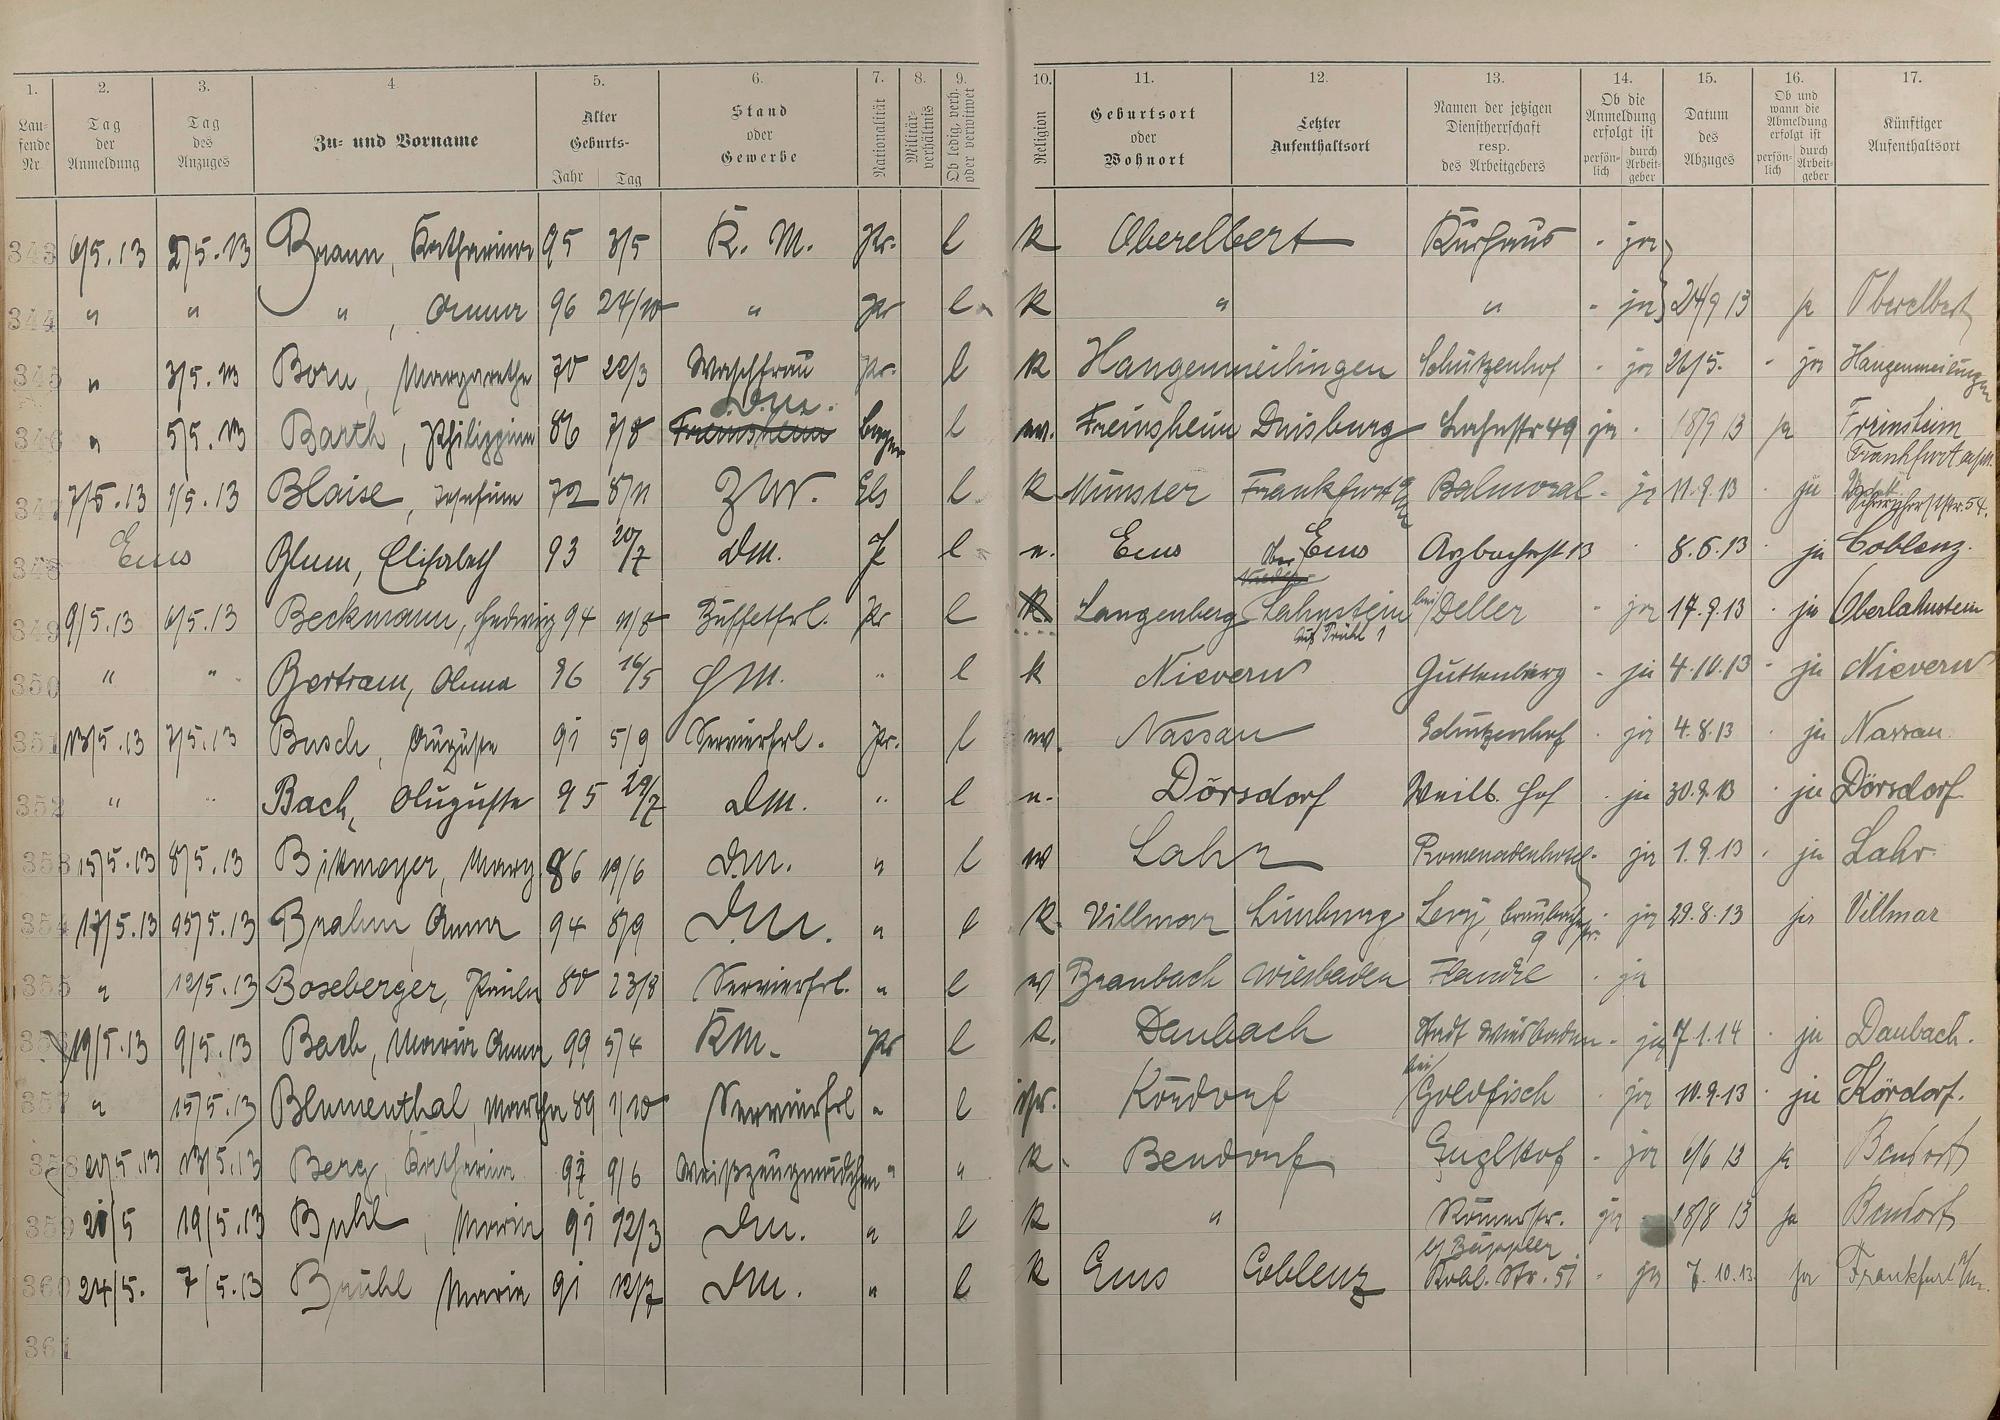 1. 2. 3. 4 5. 6. 7. 8. 9. 10. 11. 12. 13. 14. 15. 16. 17.
Lau-fende Nr. Tag der Anmeldung Tag des Anzuges Zu- und Vorname Alter Geburts- Jahr Tag Stand oder Gewerbe Nationalität Militär-verhältnis Ob ledig, verh. oder verwitwet Religion Geburtsort oder Wohnort Letzter Aufenthaltsort Namen der jetzigen Dienstherrschaft resp. des Arbeitgebers Ob die Anmeldung erfolgt ist persön-lich durch Arbeit-geber Datum des Abzuges Ob und wann die Abmeldung erfolgt ist persön-lich durch Arbeit-geber Künftiger Aufenthaltsort
343 6/5.13 2/5.13 Braun, Katharina 95 3/5 K. M. Pr. l k Oberelbert Kurhaus - ja
344 " " " , Anna 96 24/10 " Pr l k " " - ja 24/9 13 ja Oberelbert
345 " 3/5.13 Born, Margarethe 70 22/3 Waschfrau Pr. l k Hangenmeilingen Schützenhof - ja 26/5. - ja Hangenmeilingen
346 " 5/5.13 Barth, Philippine 86 7/8 Freinsheim D.M. Bayer l ev. Freinsheim Duisburg Lahnstr 49 ja - 18/9 13 ja Freinsheim
347 7/5.13 1/5.13 Blaise, Josefine 72 8/11 ZM. Els l. k Münster Frankfurt a/M Balmoral - ja 11.9.13 - ja Frankfurt a/M. 54.
348 Ems Blum, Elisabeth 93 20/7 DM. P l e. Ems Ems Arzbacherst 13 - 8.6.13 - ja Coblenz.
349 9/5.13 6/5.13 Beckmann, Hedwig 94 11/8 Büffetfrl. Pr l k Langenberg Nieder Ober Lahnstein Auf Brühl 1 bei Deller - ja 17.9.13 - ja Oberlahnstein
350 " " Bertram, Anna 96 16/5 HM. " l k Nievern Guttenberg - ja 4.10.13 - ja Nievern
351 13/5.13 7/5.13 Busch, Auguste 91 5/9 Servierfrl. Pr. l ev. Nassau Schützenhof - ja 4.8.13 - ja Nassau
352 " " Bach, Auguste 95 29/7 DM. " l e. Dörsdorf Weilb. Hof - ja 30.9.13 - ja Dörsdorf
353 15/5.13 8/5.13 Bikmeyer, Marg. 86 19/6 D.M. " l ev Lahr Promenadenhotel - ja 1.9.13 - ja Lahr.
354 17/5.13 15/5.13 Brahm Anna 94 8/9 D.M. " l k. Villmar Limburg Levy, Braubacherstr. 9 - ja 29.8.13 ja Villmar
355 " 12/5.13 Boseberger, Paula 80 23/8 Servierfrl. " l ev Braubach Wiesbaden Flandre - ja
356 19/5.13 9/5.13 Bach, Maria Anna 99 5/4 KM. Pr l k. Daubach Stadt Wiesbaden - ja 7.1.14 - ja Daubach.
357 " 15/5.13 Blumenthal, Martha 89 1/10 Servierfrl " l isr. Kördorf bei Goldfisch - ja 10.9.13 - ja Kördorf.
358 20/5.13 13/5.13 Berg, Katharina 97 9/6 Weißzeugmädchen " " k. Bendorf Engl Hof - ja 6/6 13 ja Bendorf
359 21/5 19/5.13 Buhl, Maria 91 12/3 DM. " l k " Römerstr. ja - 18/8 13 ja Bendorf
360 24/5. 7/5.13 Brühl Maria 91 12/7 DM. " l k Ems Coblenz Kobl. Str. 51 - ja 7.10.13 ja Frankfurt a/M.
361